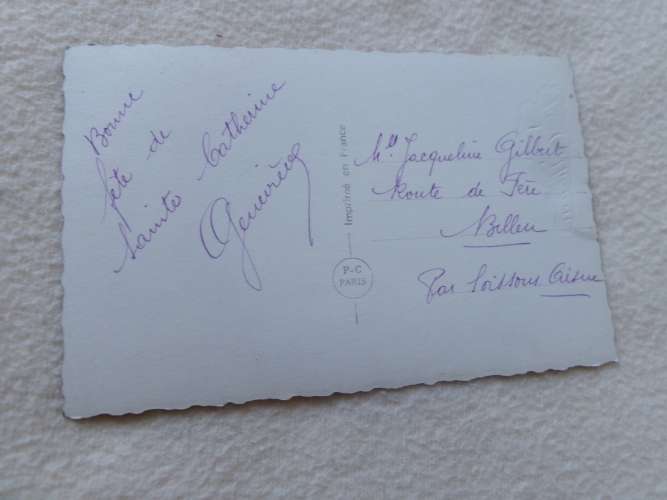 Bonne
fête de
Sainte Catherine
Geneviève
Imprimé en France
P-C
PARIS
Mlle Jacqueline Gilbert
Route de Fère
Billy
Par Soissons Aisne